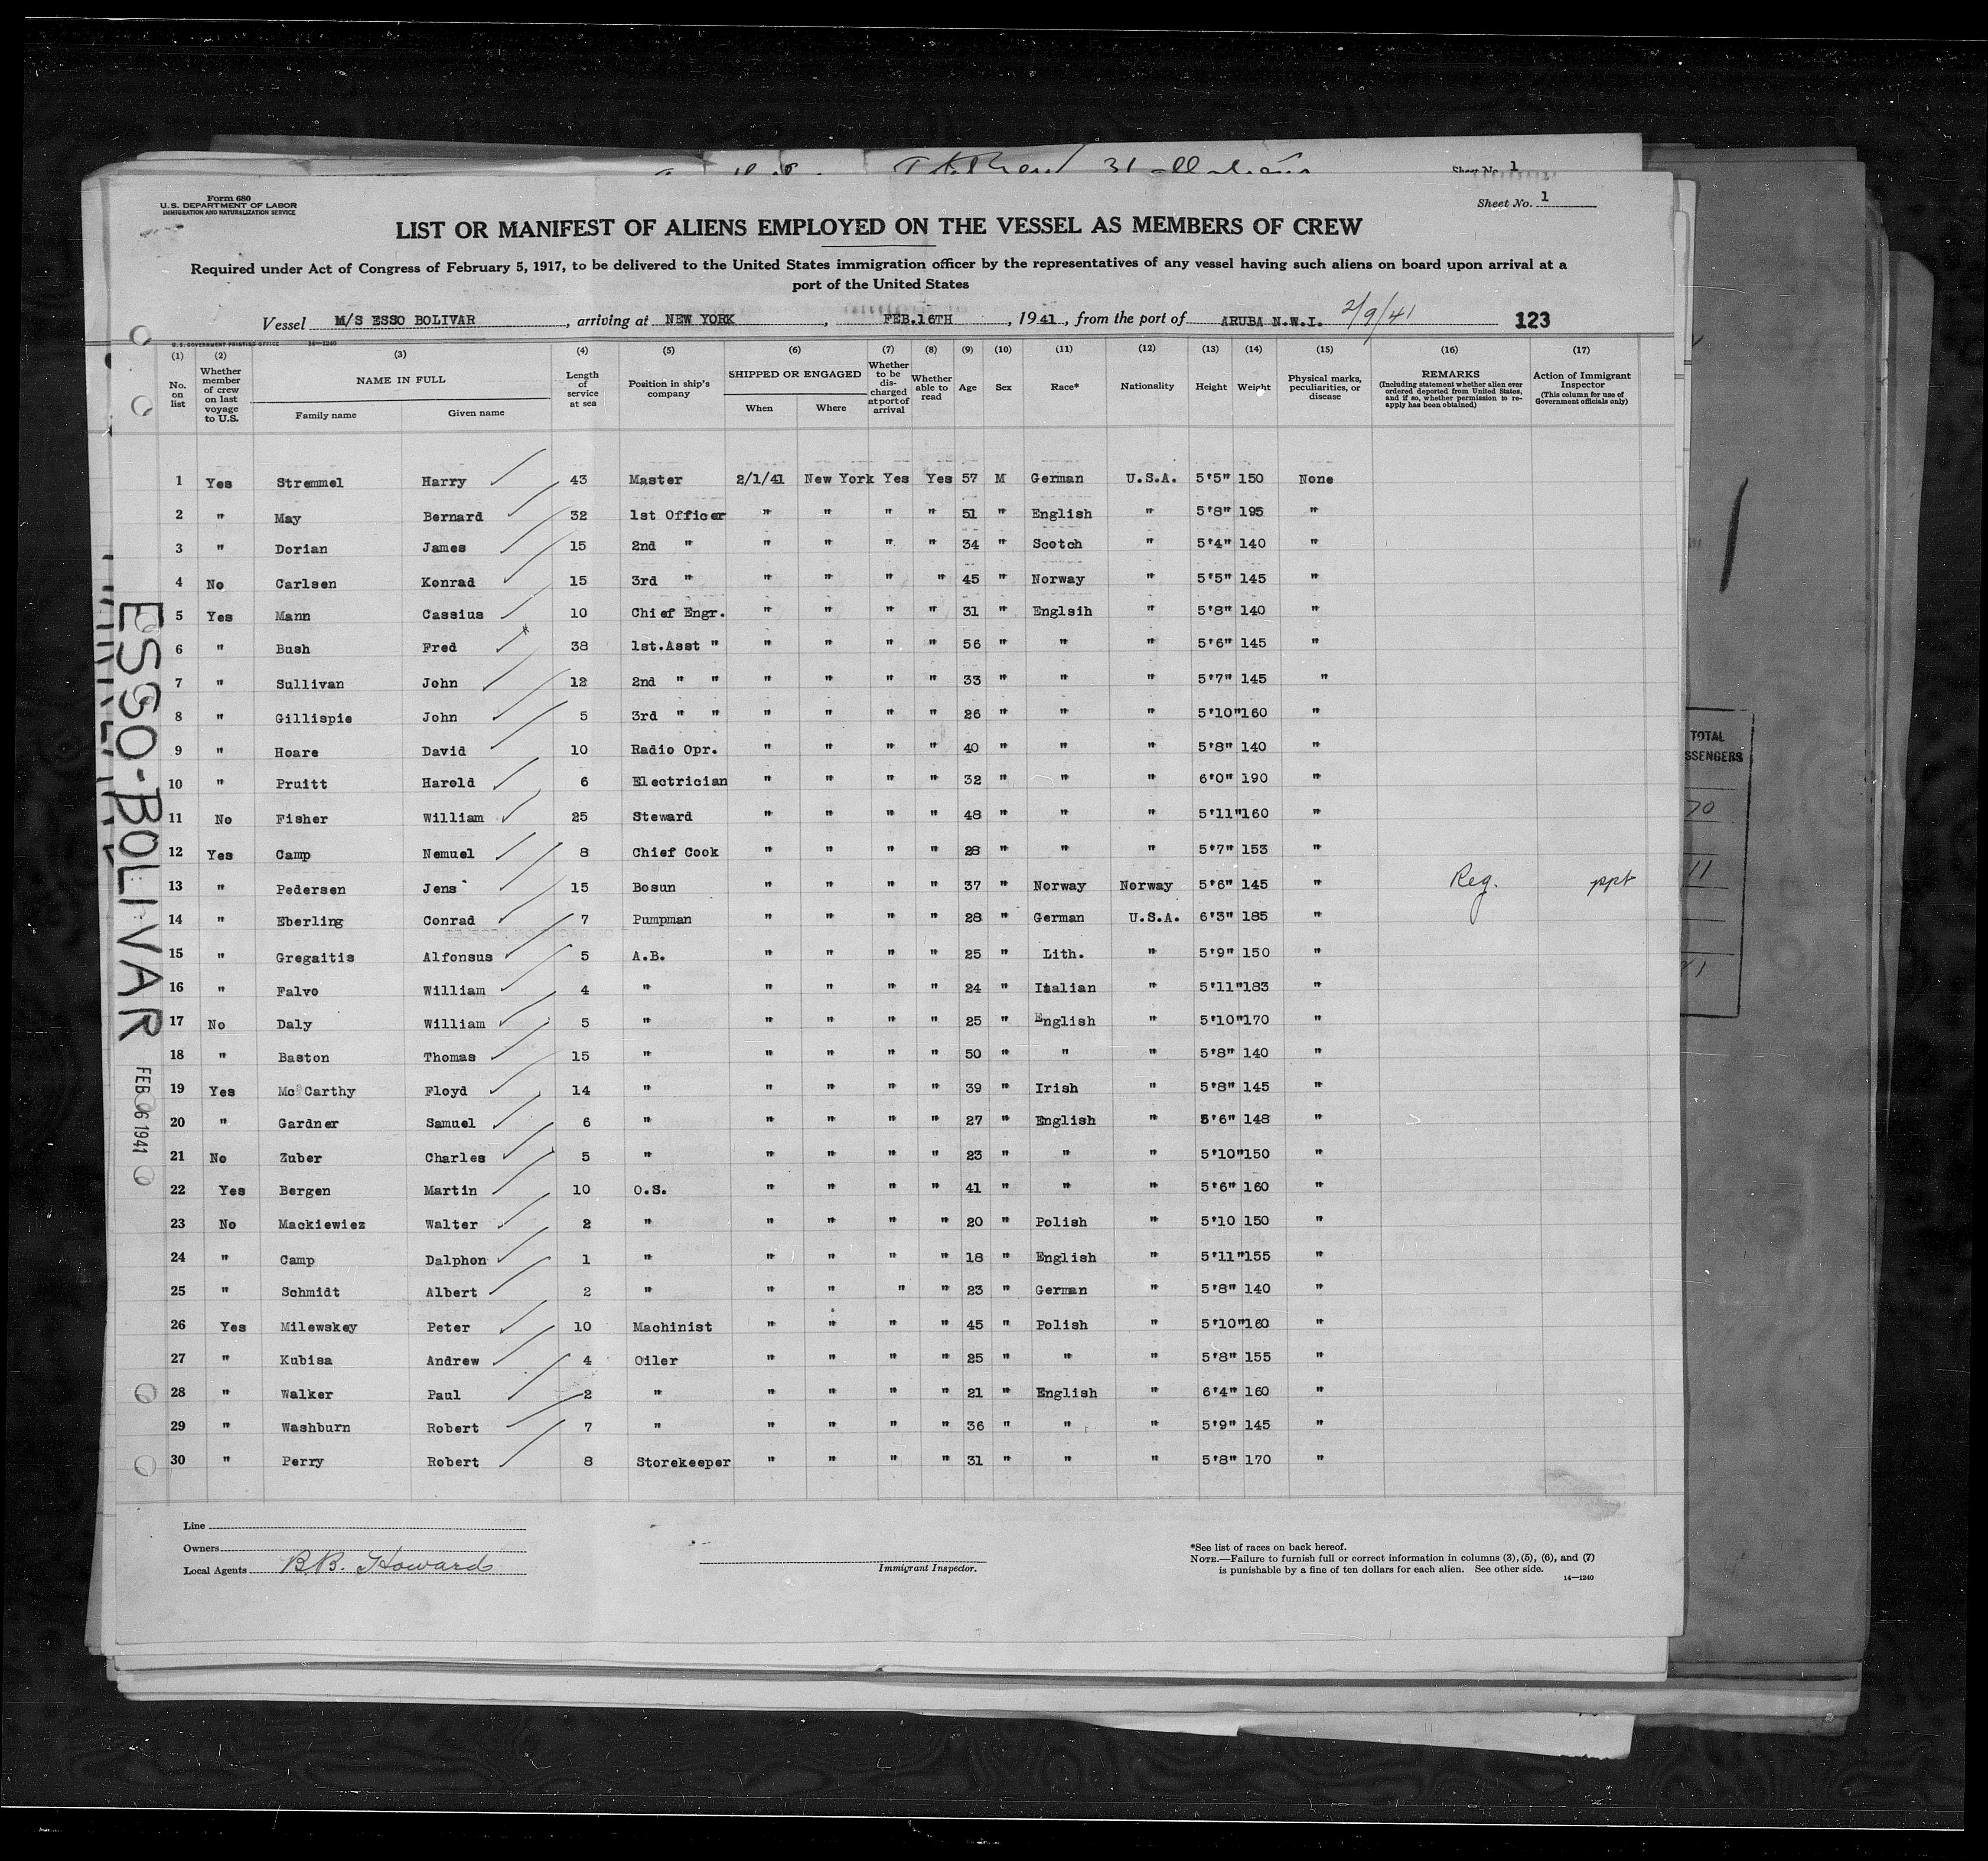 Sheet No. 1
Form 680
U.S. DEPARTMENT OF LABOR
IMMIGRATION AND NATURALIZATION SERVICE
Sheet No. 1
LIST OR MANIFEST OF ALIENS EMPLOYED ON THE VESSEL AS MEMBERS OF CREW
Required under Act of Congress of February 5, 1917, to be delivered to the United States immigration officer by the representatives of any vessel having such aliens on board upon arrival at a
port of the United States
Vessel M/S ESSO BOLIVAR, arriving at NEW YORK, FEB.16TH, 1941, from the port of ARUBA N.W.I. 2/9/41 123
U. S. GOVERNMENT PRINTING OFFICE 14—1240
(1) (2) (3) (4) (5) (6) (7) (8) (9) (10) (11) (12) (13) (14) (15) (16) (17)
No. on list
Whether member of crew on last voyage to U.S.
NAME IN FULL
Family name Given name
Length of service at sea
Position in ship's company
SHIPPED OR ENGAGED
When Where
Whether to be discharged at port of arrival
Whether able to read
Age Sex Race* Nationality Height Weight
Physical marks, peculiarities, or disease
REMARKS
(Including statement whether alien ever ordered deported from United States, and if so, whether permission to re-apply has been obtained)
Action of Immigrant Inspector
(This column for use of Government officials only)
1 Yes Stremmel Harry 43 Master 2/1/41 New York Yes Yes 57 M German U.S.A. 5'5" 150 None
2 " May Bernard 32 1st Officer " " " " 51 " English " 5'8" 195 "
3 " Dorian James 15 2nd " " " " " 34 " Scotch " 5'4" 140 "
4 No Carlsen Konrad 15 3rd " " " " " 45 " Norway " 5'5" 145 "
5 Yes Mann Cassius 10 Chief Engr. " " " " 31 " Englsih " 5'8" 140 "
6 " Bush Fred 38 1st.Asst " " " " " 56 " " " 5'6" 145 "
7 " Sullivan John 12 2nd " " " " " " 33 " " " 5'7" 145 "
8 " Gillispie John 5 3rd " " " " " " 26 " " " 5'10" 160 "
9 " Hoare David 10 Radio Opr. " " " " 40 " " " 5'8" 140 "
10 " Pruitt Harold 6 Electrician " " " " 32 " " " 6'0" 190 "
11 No Fisher William 25 Steward " " " " 48 " " " 5'11" 160 "
12 Yes Camp Nemuel 8 Chief Cook " " " " 28 " " " 5'7" 153 "
13 " Pedersen Jens 15 Bosun " " " " 37 " Norway Norway 5'6" 145 " Reg. ppt
14 " Eberling Conrad 7 Pumpman " " " " 28 " German U.S.A. 6'3" 185 "
15 " Gregaitis Alfonsus 5 A.B. " " " " 25 " Lith. " 5'9" 150 "
16 " Falvo William 4 " " " " " 24 " Italian " 5'11" 183 "
17 No Daly William 5 " " " " " 25 " English " 5'10" 170 "
18 " Baston Thomas 15 " " " " " 50 " " " 5'8" 140 "
19 Yes McCarthy Floyd 14 " " " " " 39 " Irish " 5'8" 145 "
20 " Gardner Samuel 6 " " " " " 27 " English " 5'6" 148 "
21 No Zuber Charles 5 " " " " " 23 " " " 5'10" 150 "
22 Yes Bergen Martin 10 O.S. " " " " 41 " " " 5'6" 160 "
23 No Mackiewiez Walter 2 " " " " " 20 " Polish " 5'10 150 "
24 " Camp Dalphon 1 " " " " " 18 " English " 5'11" 155 "
25 " Schmidt Albert 2 " " " " " 23 " German " 5'8" 140 "
26 Yes Milewskey Peter 10 Machinist " " " " 45 " Polish " 5'10" 160 "
27 " Kubisa Andrew 4 Oiler " " " " 25 " " " 5'8" 155 "
28 " Walker Paul 2 " " " " " 21 " English " 6'4" 160 "
29 " Washburn Robert 7 " " " " " 36 " " " 5'9" 145 "
30 " Perry Robert 8 Storekeeper " " " " 31 " " " 5'8" 170 "
Line
Owners
Local Agents B.B. Howard
Immigrant Inspector.
*See list of races on back hereof.
NOTE.—Failure to furnish full or correct information in columns (3), (5), (6), and (7)
is punishable by a fine of ten dollars for each alien. See other side.
14—1240
ESSO-BOLIVAR
TOTAL
SSENGERS
70
11